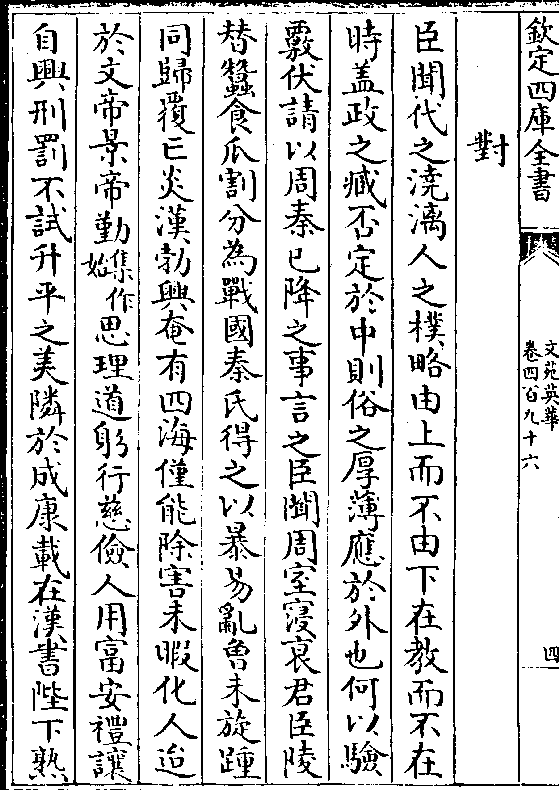 欽定四庫全書
文苑英華
卷四百九十六
四
對
臣聞代之澆漓人之樸略由上而不由下在教而不在
時盖政之臧否定於中則俗之厚薄應於外也何以驗
覈伏請以周秦已降之事言之臣聞周室寖衰君臣陵
替蠶食瓜割分為戰國秦氏得之以暴易亂曾未旋踵
同歸覆亡炎漢勃興奄有四海僅能除害未暇化人迨
於文帝景帝勤集作始思理道躬行慈儉人用富安禮讓
自興刑罰不試升平之美隣於成康載在漢書陛下熟